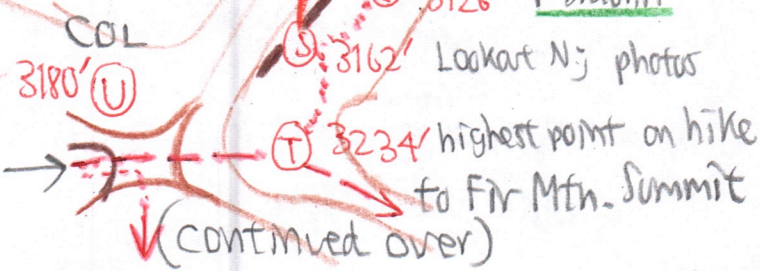 3126
COL
3180' U
S 3162' Lookout N; photos
T 3234' highest point on hike
to Fir Mtn. Summit
(continued over)